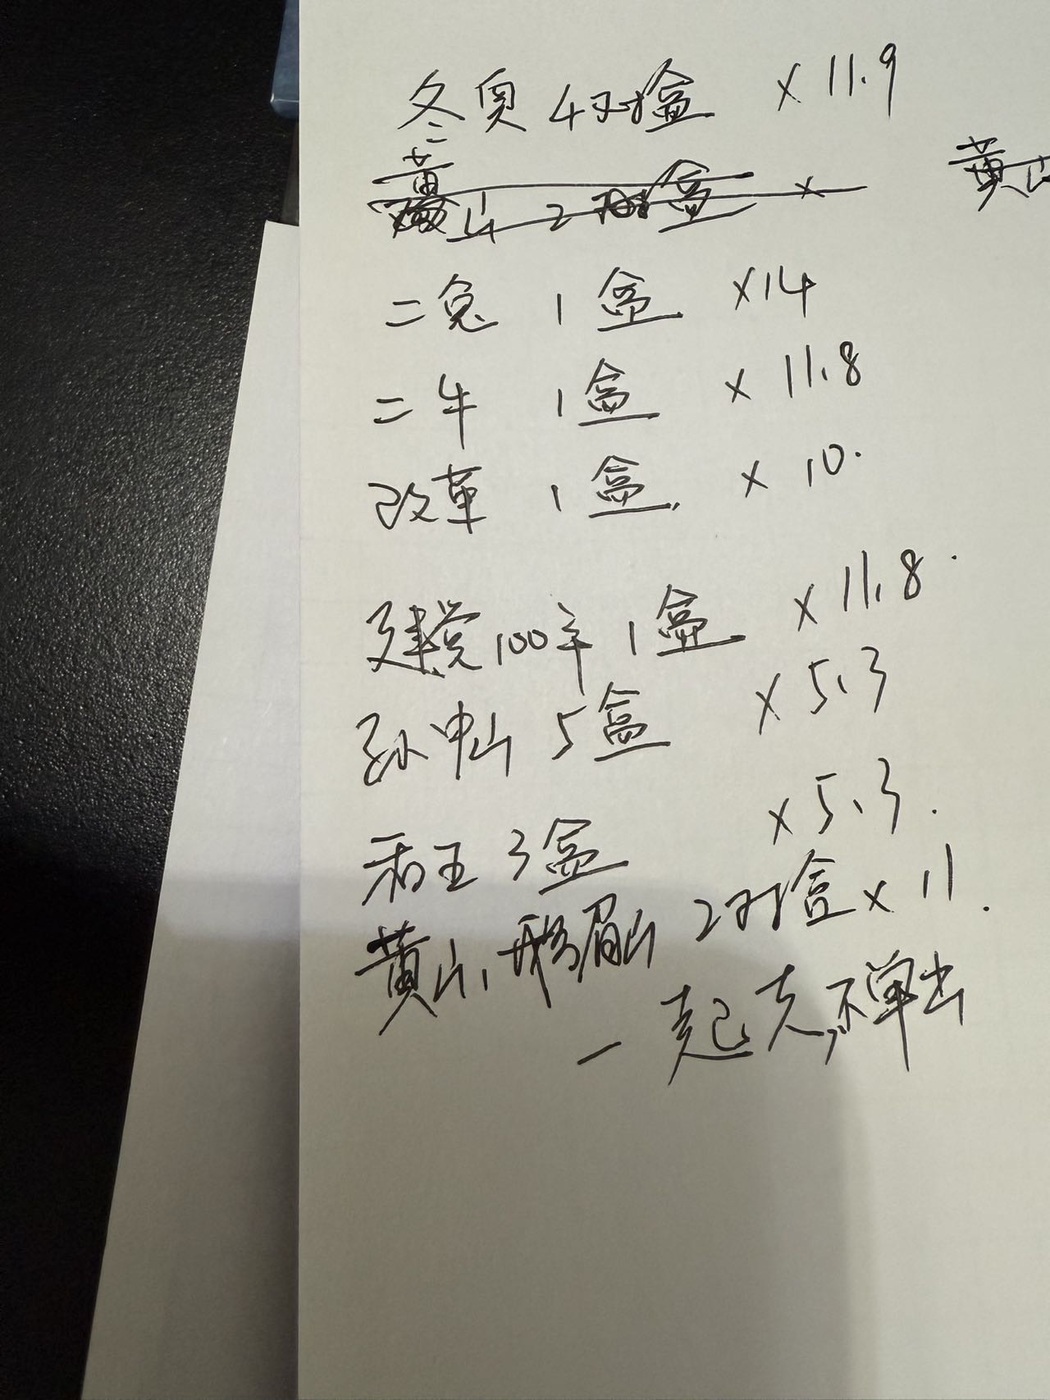 冬奥 4对盒 ×11.9
黄山 2对盒 ×
黄山
二兔 1盒 ×14
二牛 1盒 ×11.8
改革 1盒 ×10.
建党100年 1盒 ×11.8
孙中山 5盒 ×5.3
和五 3盒 ×5.3.
黄山、峨眉山 2对盒×11.
一起走,不单出